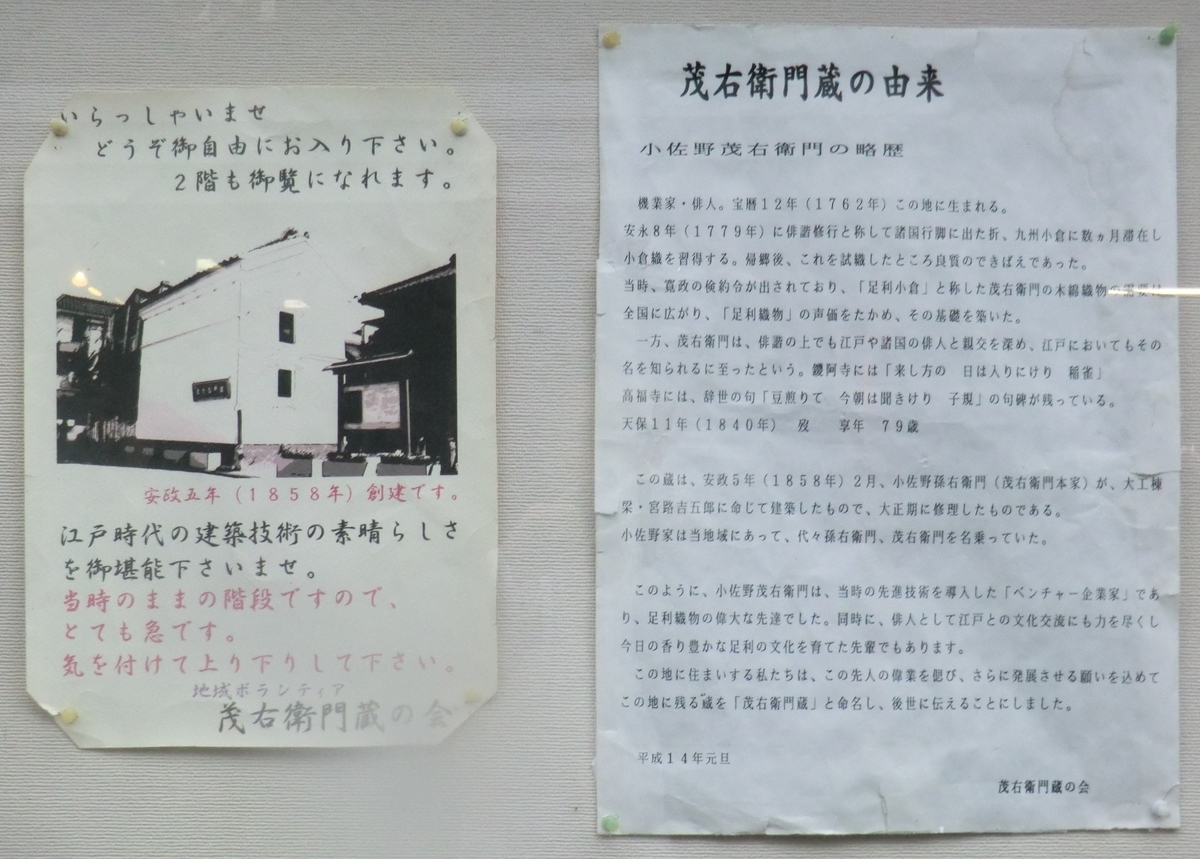 いらっしゃいませ
どうぞ御自由にお入り下さい。
2階も御覧になれます。
安政五年(1858年)創建です。
江戸時代の建築技術の素晴らしさ
を御堪能下さいませ。
当時のままの階段ですので、
とても急です。
気を付けて上り下りして下さい。
地域ボランティア
茂右衛門蔵の会
茂右衛門蔵の由来
小佐野茂右衛門の略歴
機業家・俳人。宝暦12年(1762年)この地に生まれる。
安永8年(1779年)に俳諧修行と称して諸国行脚に出た折、九州小倉に数ヵ月滞在し
小倉織を習得する。帰郷後、これを試織したところ良質のできばえであった。
当時、寛政の倹約令が出されており、「足利小倉」と称した茂右衛門の木綿織物の需要は
全国に広がり、「足利織物」の声価をたかめ、その基礎を築いた。
一方、茂右衛門は、俳諧の上でも江戸や諸国の俳人と親交を深め、江戸においてもその
名を知られるに至ったという。鑁阿寺には「来し方の 日は入りにけり 稲雀」
高福寺には、辞世の句「豆煎りて 今朝は聞きけり 子規」の句碑が残っている。
天保11年(1840年) 歿 享年 79歳
この蔵は、安政5年(1858年)2月、小佐野孫右衛門(茂右衛門本家)が、大工棟
梁・宮路吉五郎に命じて建築したもので、大正期に修理したものである。
小佐野家は当地域にあって、代々孫右衛門、茂右衛門を名乗っていた。
このように、小佐野茂右衛門は、当時の先進技術を導入した「ベンチャー企業家」であ
り、足利織物の偉大な先達でした。同時に、俳人として江戸との文化交流にも力を尽くし
今日の香り豊かな足利の文化を育てた先輩でもあります。
この地に住まいする私たちは、この先人の偉業を偲び、さらに発展させる願いを込めて
この地に残る蔵を「茂右衛門蔵」と命名し、後世に伝えることにしました。
平成14年元旦
茂右衛門蔵の会